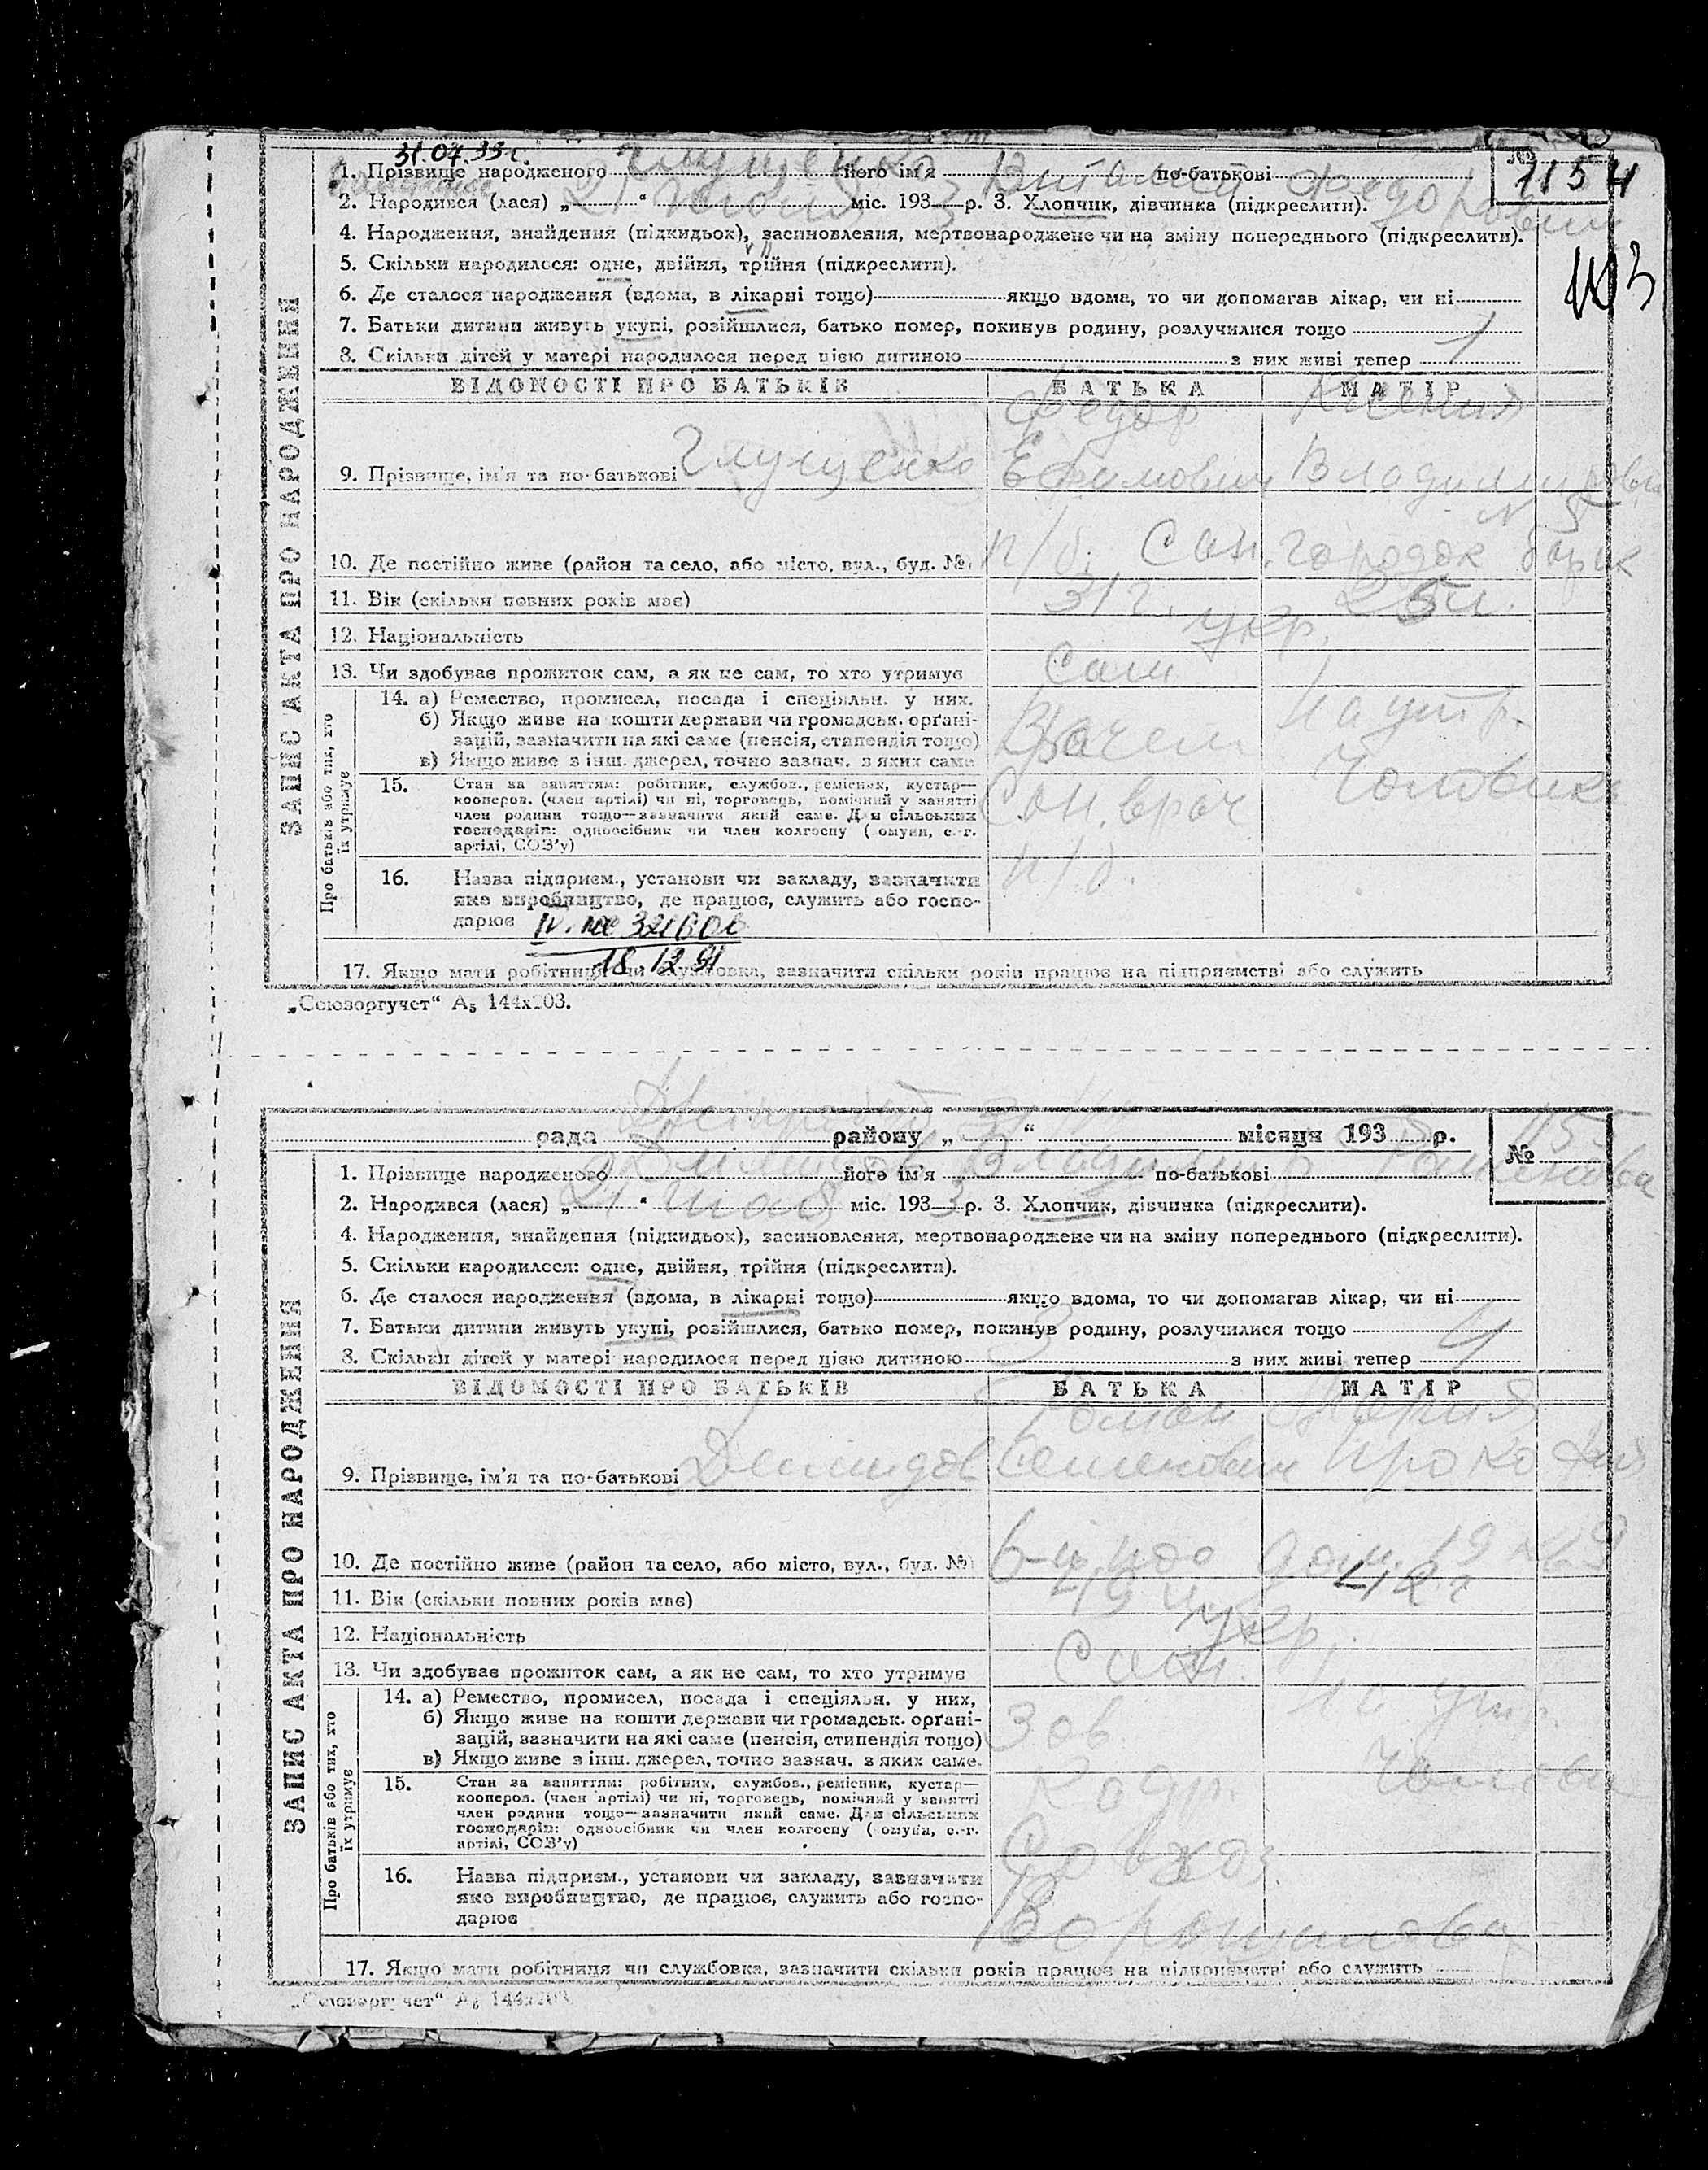 31.07.33г.
1. Прізвище народженого Глущенко його ім'я Виталий по-батькові Федорович
№ 1154
2. Народився (лася) „21“ міс. 1933 р. 3. Хлопчик, дівчинка (підкреслити).
4. Народження, знайдення (підкидьок), засиновлення, мертвонароджене чи на зміну попереднього (підкреслити).
103
5. Скільки народилося: одне, двійня, трійня (підкреслити).
6. Де сталося народження (вдома, в лікарні тощо) якщо вдома, то чи допомагав лікар, чи ні
7. Батьки дитини живуть укупі, розійшлися, батько помер, покинув родину, розлучилися тощо
8. Скільки дітей у матері народилося перед цією дитиною з них живі тепер 1
ЗАПИС АКТА ПРО НАРОДЖЕННЯ
ВІДОМОСТІ ПРО БАТЬКІВ БАТЬКА МАТІР
Федор Ксения
9. Прізвище, ім'я та по-батькові Глущенко Ефимович Владимировна
N 5
10. Де постійно живе (район та село, або місто, вул., буд. №) п/б. Сан. городок барак
11. Вік (скільки повних років має) 31г. 25л.
12. Національність укр.
13. Чи здобуває прожиток сам, а як не сам, то хто утримує Сам
Про батьків або тих, хто їх утримує
14. а) Ремество, промисел, посада і спеціяльн. у них. На утр.
б) Якщо живе на кошти держави чи громадськ. орґані- Врачем
зацій, зазначити на які саме (пенсія, стипендія тощо)
в) Якщо живе з інш. джерел, точно зазнач. з яких саме
15. Стан за заняттям: робітник, службов., ремісник, кустар— Сан. врач Чоловика
кооперов. (член артілі) чи ні, торговець, помічний у занятті
член родини тощо—зазначити який саме. Для сільських
господарів: одноосібник чи член колгоспу (комуни, с.-г.
артілі, СОЗ'у)
16. Назва підприєм., установи чи закладу, зазначити п/б.
яке виробництво, де працює, служить або госпо-
дарює
18.12.91
17. Якщо мати робітниця чи службовка, зазначити скільки років працює на підприємстві або служить
„Союзоргучет“ А₅ 144х203.
рада району „31“ місяця 193 р.
№ 1155
1. Прізвище народженого його ім'я Владимир по-батькові Романова
2. Народився (лася) „21“ мая міс. 1933 р. 3. Хлопчик, дівчинка (підкреслити).
4. Народження, знайдення (підкидьок), засиновлення, мертвонароджене чи на зміну попереднього (підкреслити).
5. Скільки народилося: одне, двійня, трійня (підкреслити).
6. Де сталося народження (вдома, в лікарні тощо) якщо вдома, то чи допомагав лікар, чи ні
7. Батьки дитини живуть укупі, розійшлися, батько помер, покинув родину, розлучилися тощо
8. Скільки дітей у матері народилося перед цією дитиною 3 з них живі тепер 4
ЗАПИС АКТА ПРО НАРОДЖЕННЯ
ВІДОМОСТІ ПРО БАТЬКІВ БАТЬКА МАТІР
Роман Мария
9. Прізвище, ім'я та по-батькові Демидов Семенович Прокофия
10. Де постійно живе (район та село, або місто, вул., буд. №)
11. Вік (скільки повних років має) 49 42г
12. Національність укр.
13. Чи здобуває прожиток сам, а як не сам, то хто утримує Сам.
Про батьків або тих, хто їх утримує
14. а) Ремество, промисел, посада і спеціяльн. у них, На утр.
б) Якщо живе на кошти держави чи громадськ. орґані- Зав.
зацій, зазначити на які саме (пенсія, стипендія тощо)
в) Якщо живе з інш. джерел, точно зазнач. з яких саме.
15. Стан за заняттям: робітник, службов., ремісник, кустар— Кадр. Чолови
кооперов. (член артілі) чи ні, торговець, помічний у занятті
член родини тощо—зазначити який саме. Для сільських
господарів: одноосібник чи член колгоспу (комуни, с.-г.
артілі, СОЗ'у) Совхоз
16. Назва підприєм., установи чи закладу, зазначити
яке виробництво, де працює, служить або госпо-
дарює Ворошилова
17. Якщо мати робітниця чи службовка, зазначити скільки років працює на підприємстві або служить
„Союзоргучет“ А₅ 144х203